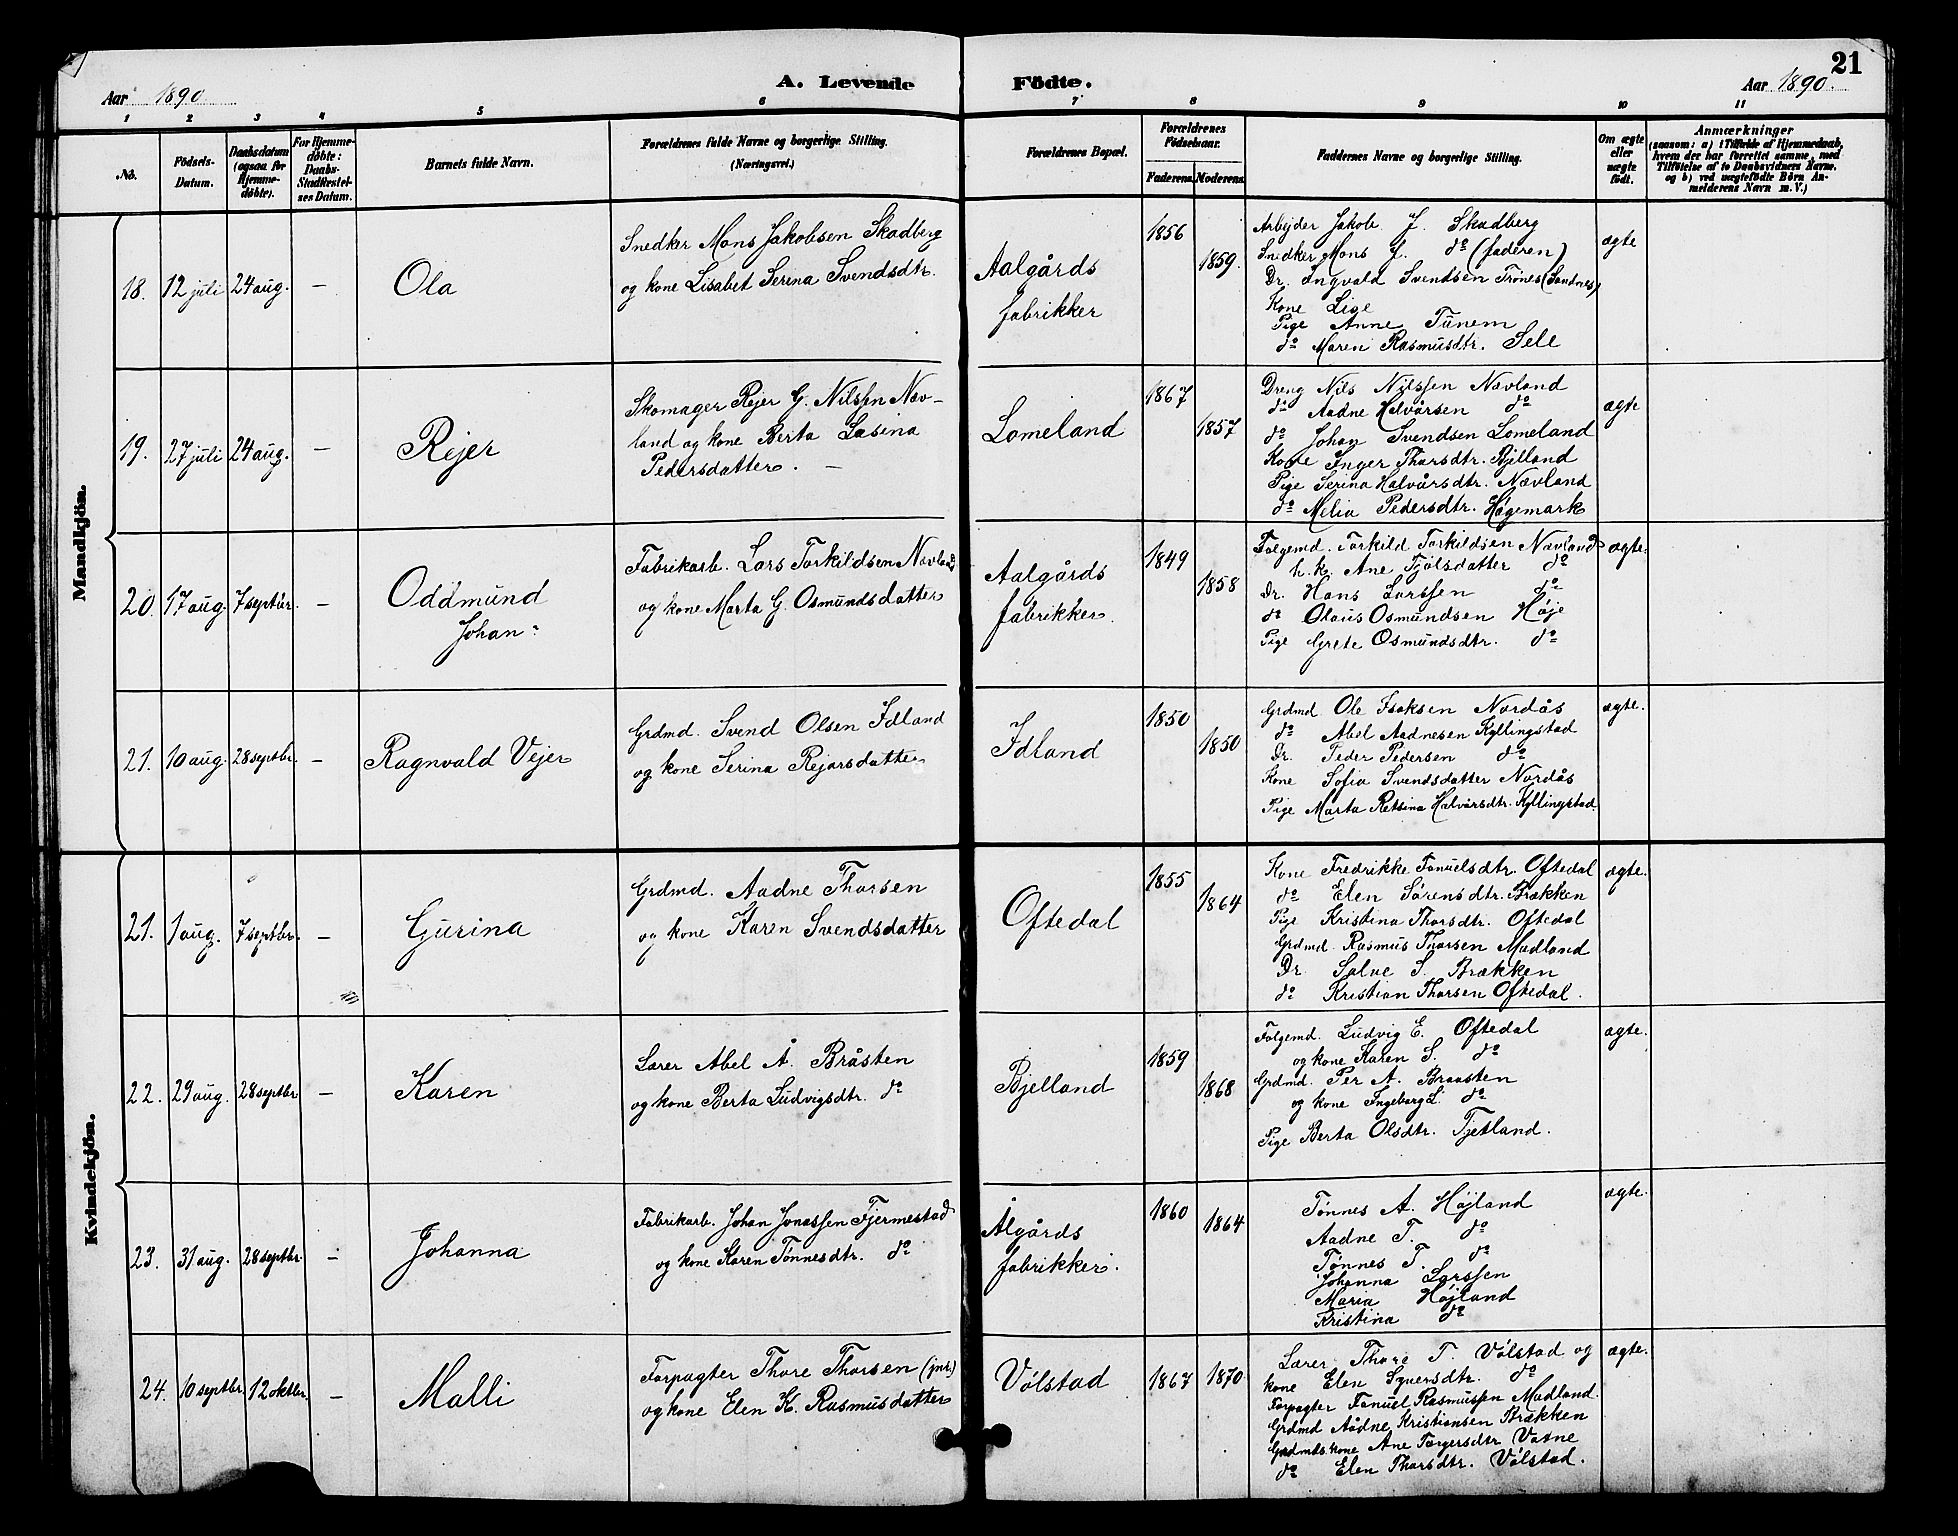 21
Aar 1890
A. Levende Födte.
Aar 1890.
1 2 3 4 5 6 7 8 9 10 11
No.
Födsels-Datum.
Daabsdatum (ogsaa for Hjemme-döbte).
For Hjemme-döbte: Daabs-Stadfæstel-ses Datum.
Barnets fulde Navn.
Forældrenes fulde Navne og borgerlige Stilling.
(Næringsvei.)
Forældrenes Bopæl.
Forældrenes Födselsaar.
Faderens. Moderens.
Faddernes Navne og borgerlige Stilling.
Om ægte eller uægte födt.
Anmærkninger
(saasom: a) i Tilfælde af Hjemmedaab, hvem der har forrettet samme, med Tilföielse af to Daabsvidners Navne, og b) ved uægtefödte Börn An-melderens Navn m. V.)
Mandkjön.
18. 12 juli 24 aug. — Ola
Snedker Mons Jakobsen Skadberg
og kone Lisabet Serina Svendsdtr.
Aalgårds
fabrikker
1856 1859.
Arbejder Jakob J. Skadberg
Snedker Mons J. do (faderen)
Dr. Ingvald Svendsen Trönes (Sandnes)
Kone Lige
Pige Anne Tunem
do Maren Rasmusdtr. Sele
ægte
19. 27 juli 24 aug. — Rejer
Skomager Rejer G. Nilssen Næv-
land og kone Berta Lasina
Pedersdatter. —
Lomeland
1867 1857
Dreng Nils Nilssen Nævland
do Aadne Halvårsen do
do Johan Svendsen Lomeland
Kone Inger Tharsdtr. Bjelland
Pige Serina Halvårsdtr. Nævland
do Melia Pedersdtr. Hægemark
ægte
20. 17 aug. 7 septbr. — Oddmund
Johan
Fabrikarb. Lars Torkildsen Nævland
og kone Marta G. Osmundsdatter
Aalgårds
fabrikker.
1849 1858
Folgemd. Torkild Torkildsen Nævland
h. k. Ane Fjölsdatter do
Dr. Hans Larssen do
do Olaus Osmundsen Høje
Pige Grete Osmundsdtr. do
ægte.
21. 10 aug. 28 septbr. — Ragnvald Vejer
Grdmd. Svend Olsen Idland
og kone Serina Rejarsdatter
Idland
1850 1850
Grdmd Ole Isaksen Nordås
do Abel Aadnesen Kyllingstad
Dr. Peder Pedersen do
Kone Sofia Svendsdatter Nordås
Pige Marta Retsina Halvårsdtr. Kyllingstad
ægte.
Kvindekjön.
21. 1 aug. 7 septbr. — Gurina
Grdmd. Aadne Tharsen
og kone Karen Svendsdatter
Oftedal
1855 1864
Kone Fredrikke Fanuelsdtr. Oftedal
do Elen Sörensdtr. Brækken
Pige Kristina Tharsdtr. Oftedal
Grdmd. Rasmus Tharsen Madland
Dr. Salve S. Brækken
do Kristian Tharsen Oftedal.
ægte.
22. 29 aug. 28 septbr — Karen
Lærer Abel Å. Bråsten
og kone Berta Ludvigsdtr. do
Bjelland
1859 1868
Folgemd. Ludvig E. Oftedal
og kone Karen S. do
Grdmd. Per A. Braasten
og kone Ingeborg L. do
Pige Berta Olsdtr. Tjetland.
ægte.
23. 31 aug. 28 septbr — Johanna
Fabrikarb. Johan Jonassen Fjermestad
og kone Karen Tønnesdtr. do
Ålgårds
fabrikker.
1860 1864
Tønnes A. Højland
Aadne T. do
Tønnes T. do
Johanna Larssen
Maria Højland
Kristina do
ægte.
24. 10 septbr 12 oktbr. — Malli
Forpagter Thore Tharsen (jnr.)
og kone Elen K. Rasmusdatter
Vølstad
1867 1870
Lærer Thore T. Vølstad og
kone Elen Syversdtr. do
Forpagter Fanuel Rasmussen Madland.
Grdmd Aådne Kristiansen Brækken
Grdmds. kone Ane Torgersdtr Vatne
do Elen Tharsdtr. Vølstad.
ægte.